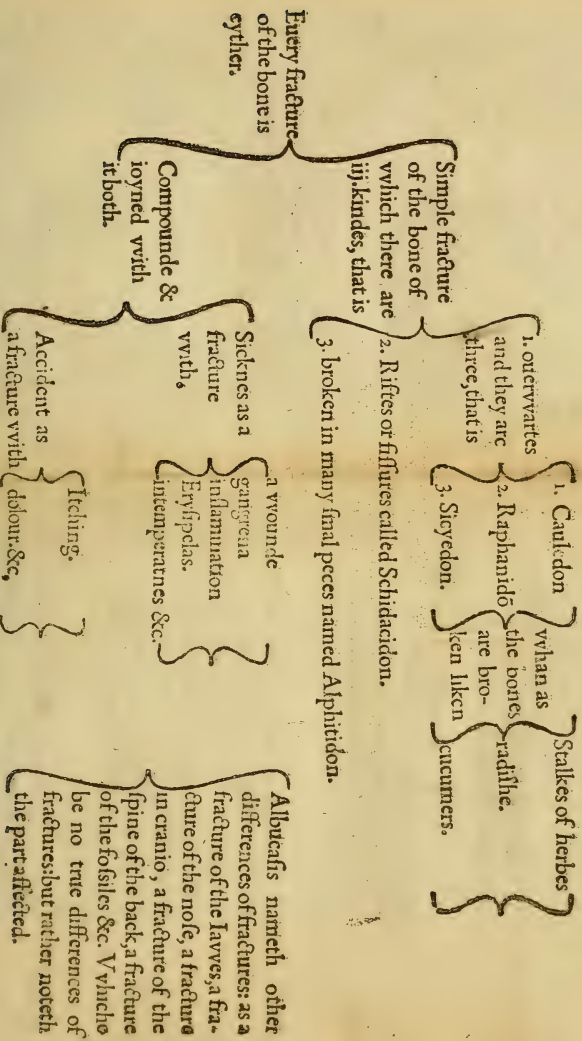 Euery fracture
of the bone is
eyther.
Simple fracture
of the bone of
vvhich there are
iij.kindes, that is
1. ouervvartes
and they are
three,that is
1. Cauledon
2. Raphanidō
3. Sicyedon.
vvhan as
the bones
are bro-
ken liken
Stalkes of herbes
radiſhe.
cucumers.
2. Riftes or fiſſures called Schidacidon.
3. broken in many ſmal peces named Alphitidon.
Compounde &
ioyned vvith
it both.
Sicknes as a
fracture
vvith,
a vvounde
gangrena
inflammation
Eryſipelas.
intemperatnes &c.
Accident as
a fracture vvith
Itching.
dolour.&c,
Albucaſis nameth other
differences of fractures: as a
fracture of the Iavves,a fra-
cture of the noſe, a fracture
in cranio, a fracture of the
ſpine of the back,a fracture
of the foſsiles &c. VVhiche
be no true differences of
fractures:but rather noteth
the part affected.